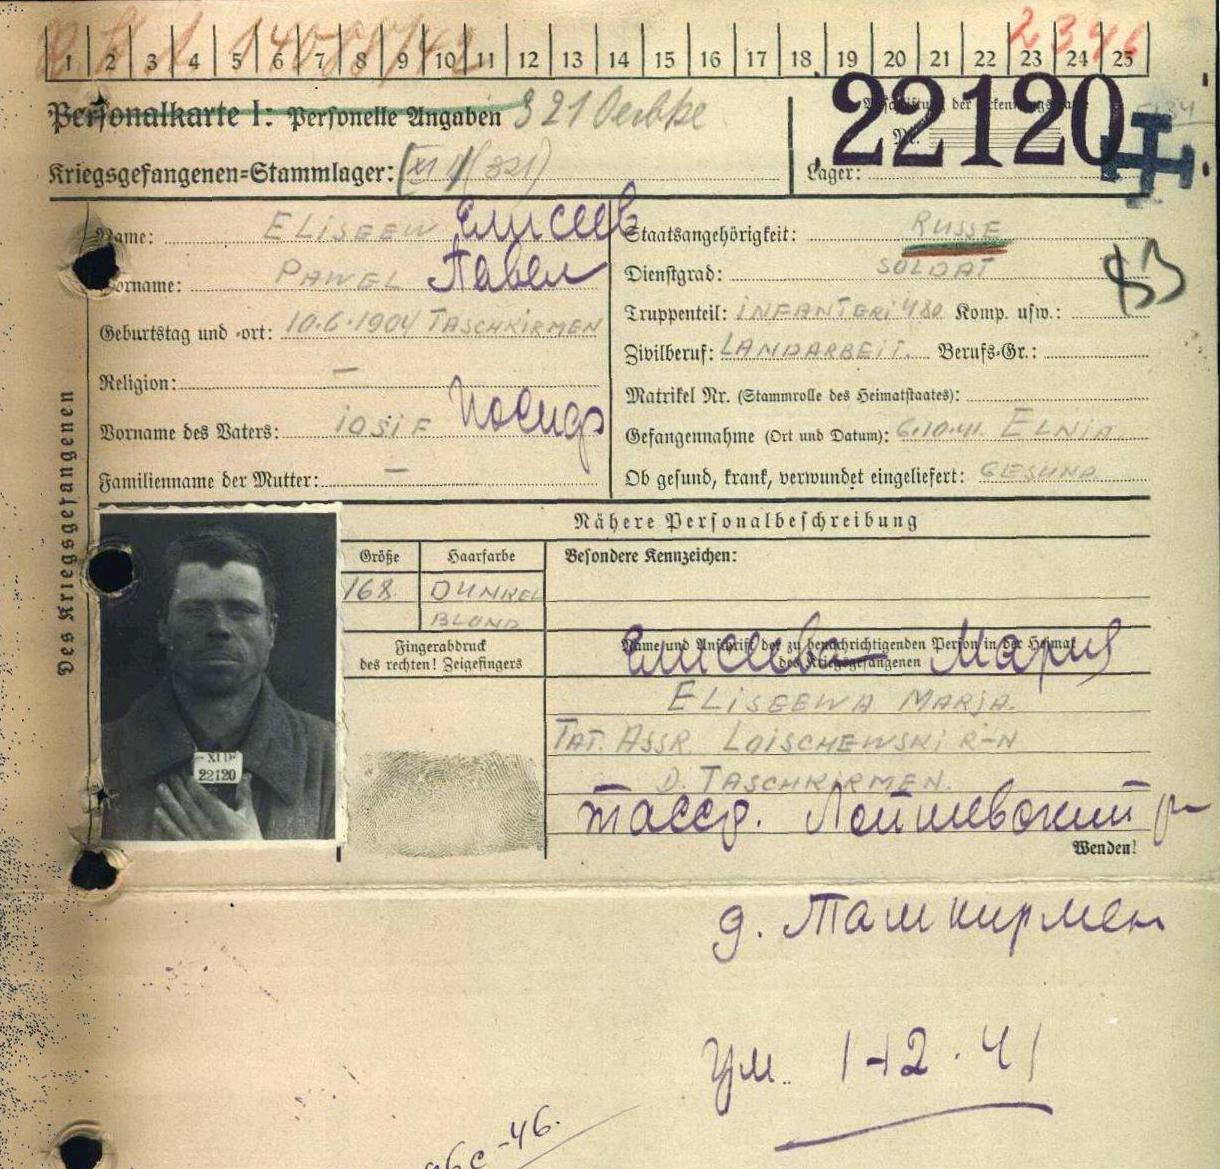 1 2 3 4 5 6 7 8 9 10 11 12 13 14 15 16 17 18 19 20 21 22 23 24 25
Personalkarte I: Personelle Angaben 321 Oerbke
Kriegsgefangenen-Stammlager: (321)
22120
Nr.
Lager:
Des Kriegsgefangenen
Name: ELISEEW Елисеев
Vorname: PAWEL Павел
Geburtstag und -ort: 10.6.1904 TASCHKIRMEN
Religion: —
Vorname des Vaters: IOSIF Иосиф
Familienname der Mutter: —
Staatsangehörigkeit: RUSSE
Dienstgrad: SOLDAT
Truppenteil: INFANTERI 480 Komp. usw.:
Zivilberuf: LANDARBEIT. Berufs-Gr.:
Matrikel Nr. (Stammrolle des Heimatstaates):
Gefangennahme (Ort und Datum): 6.10.41. ELNIA
Ob gesund, krank, verwundet eingeliefert: GESUND
Nähere Personalbeschreibung
Größe Haarfarbe Besondere Kennzeichen:
168. DUNKEL
BLOND
Fingerabdruck
des rechten! Zeigefingers
XI D
22120
Name und Anschrift der zu benachrichtigenden Person in der Heimat
des Kriegsgefangenen
Елисеева Мария
ELISEEWA MARJA.
TAT. ASSR. LOISCHEWSKI R-N
D. TASCHKIRMEN.
тасср. Лоишевский р-
Wenden!
д. Ташкирмен
ум. 1-12.41
-46.